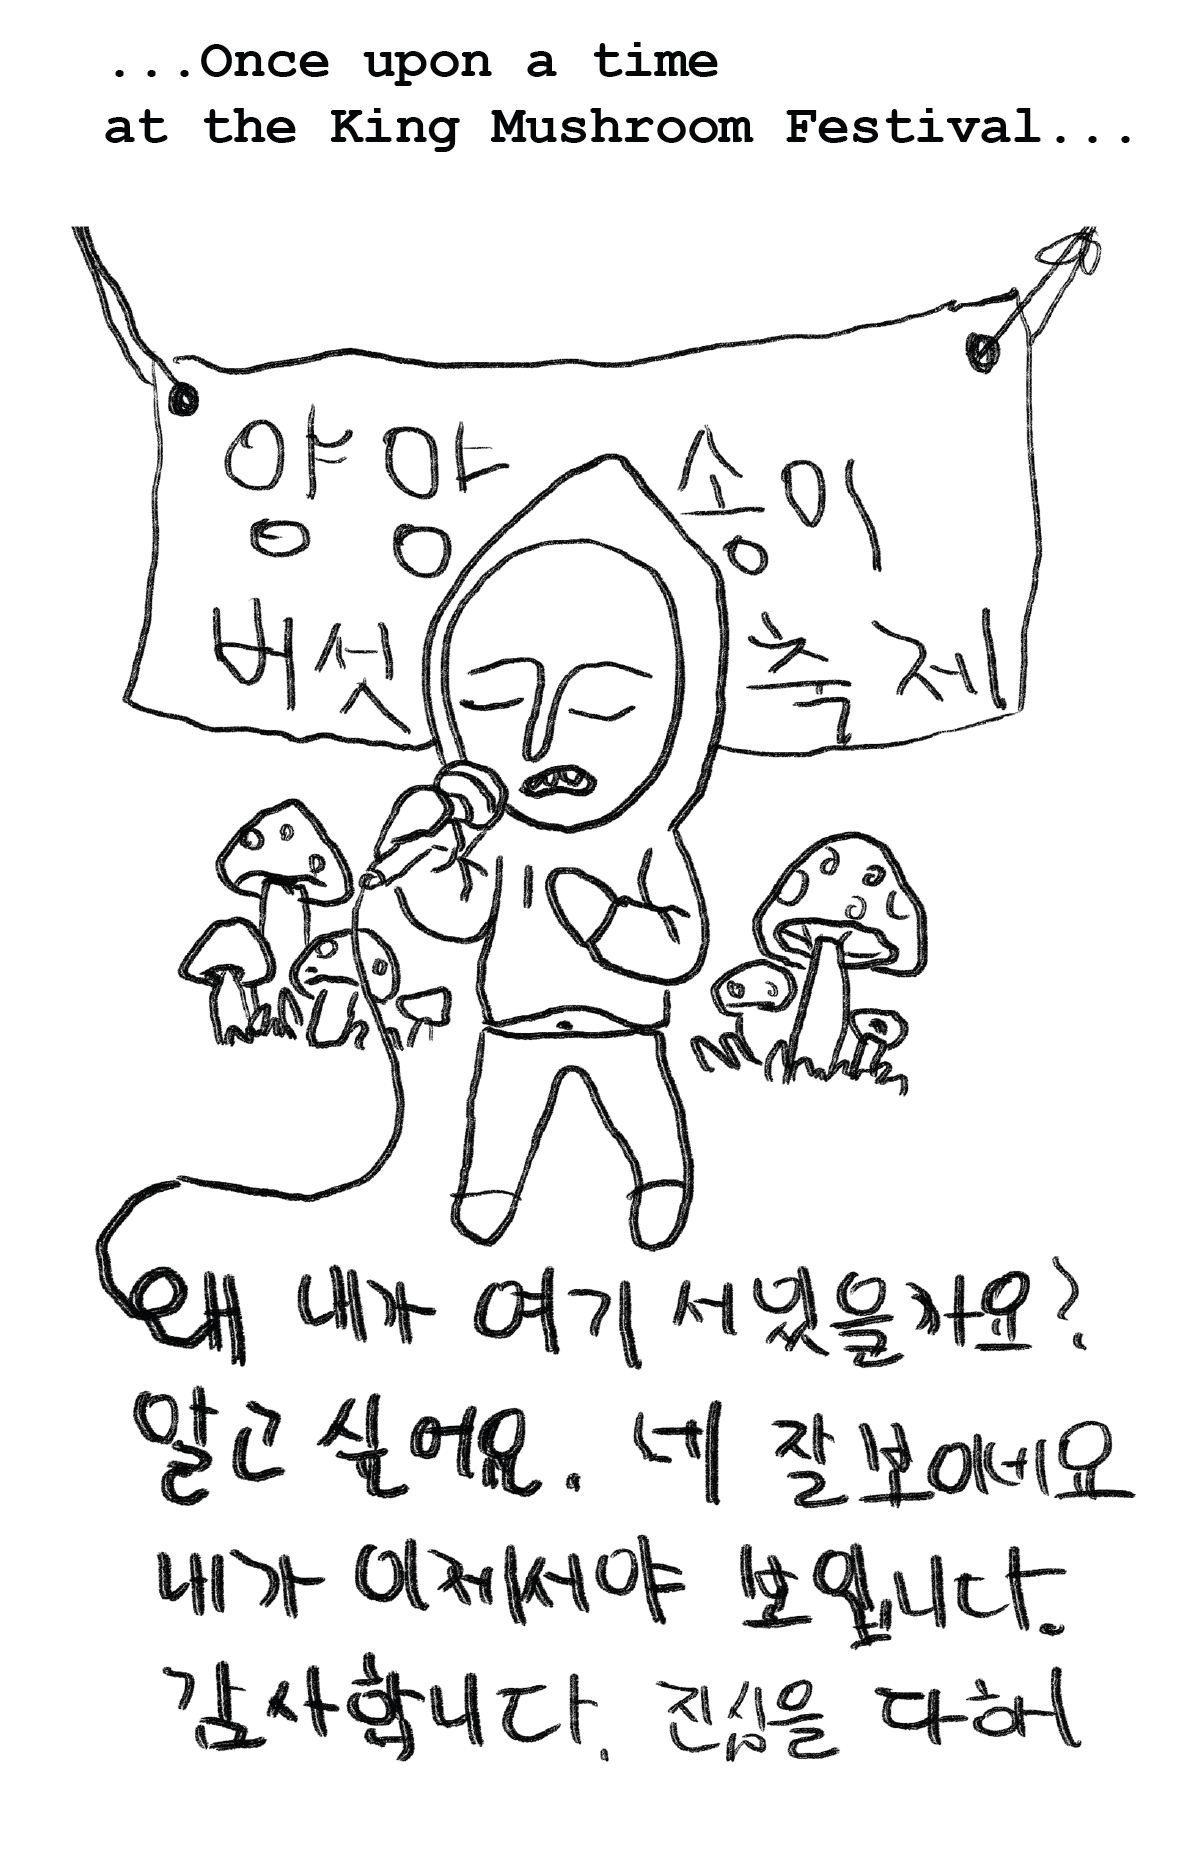 ...Once upon a time
at the King Mushroom Festival...
양양 송이
버섯 축제
왜 내가 여기 서있을까요?
알고 싶어요. 네 잘 보이네요
내가 이제서야 보입니다.
감사합니다. 진심을 다해